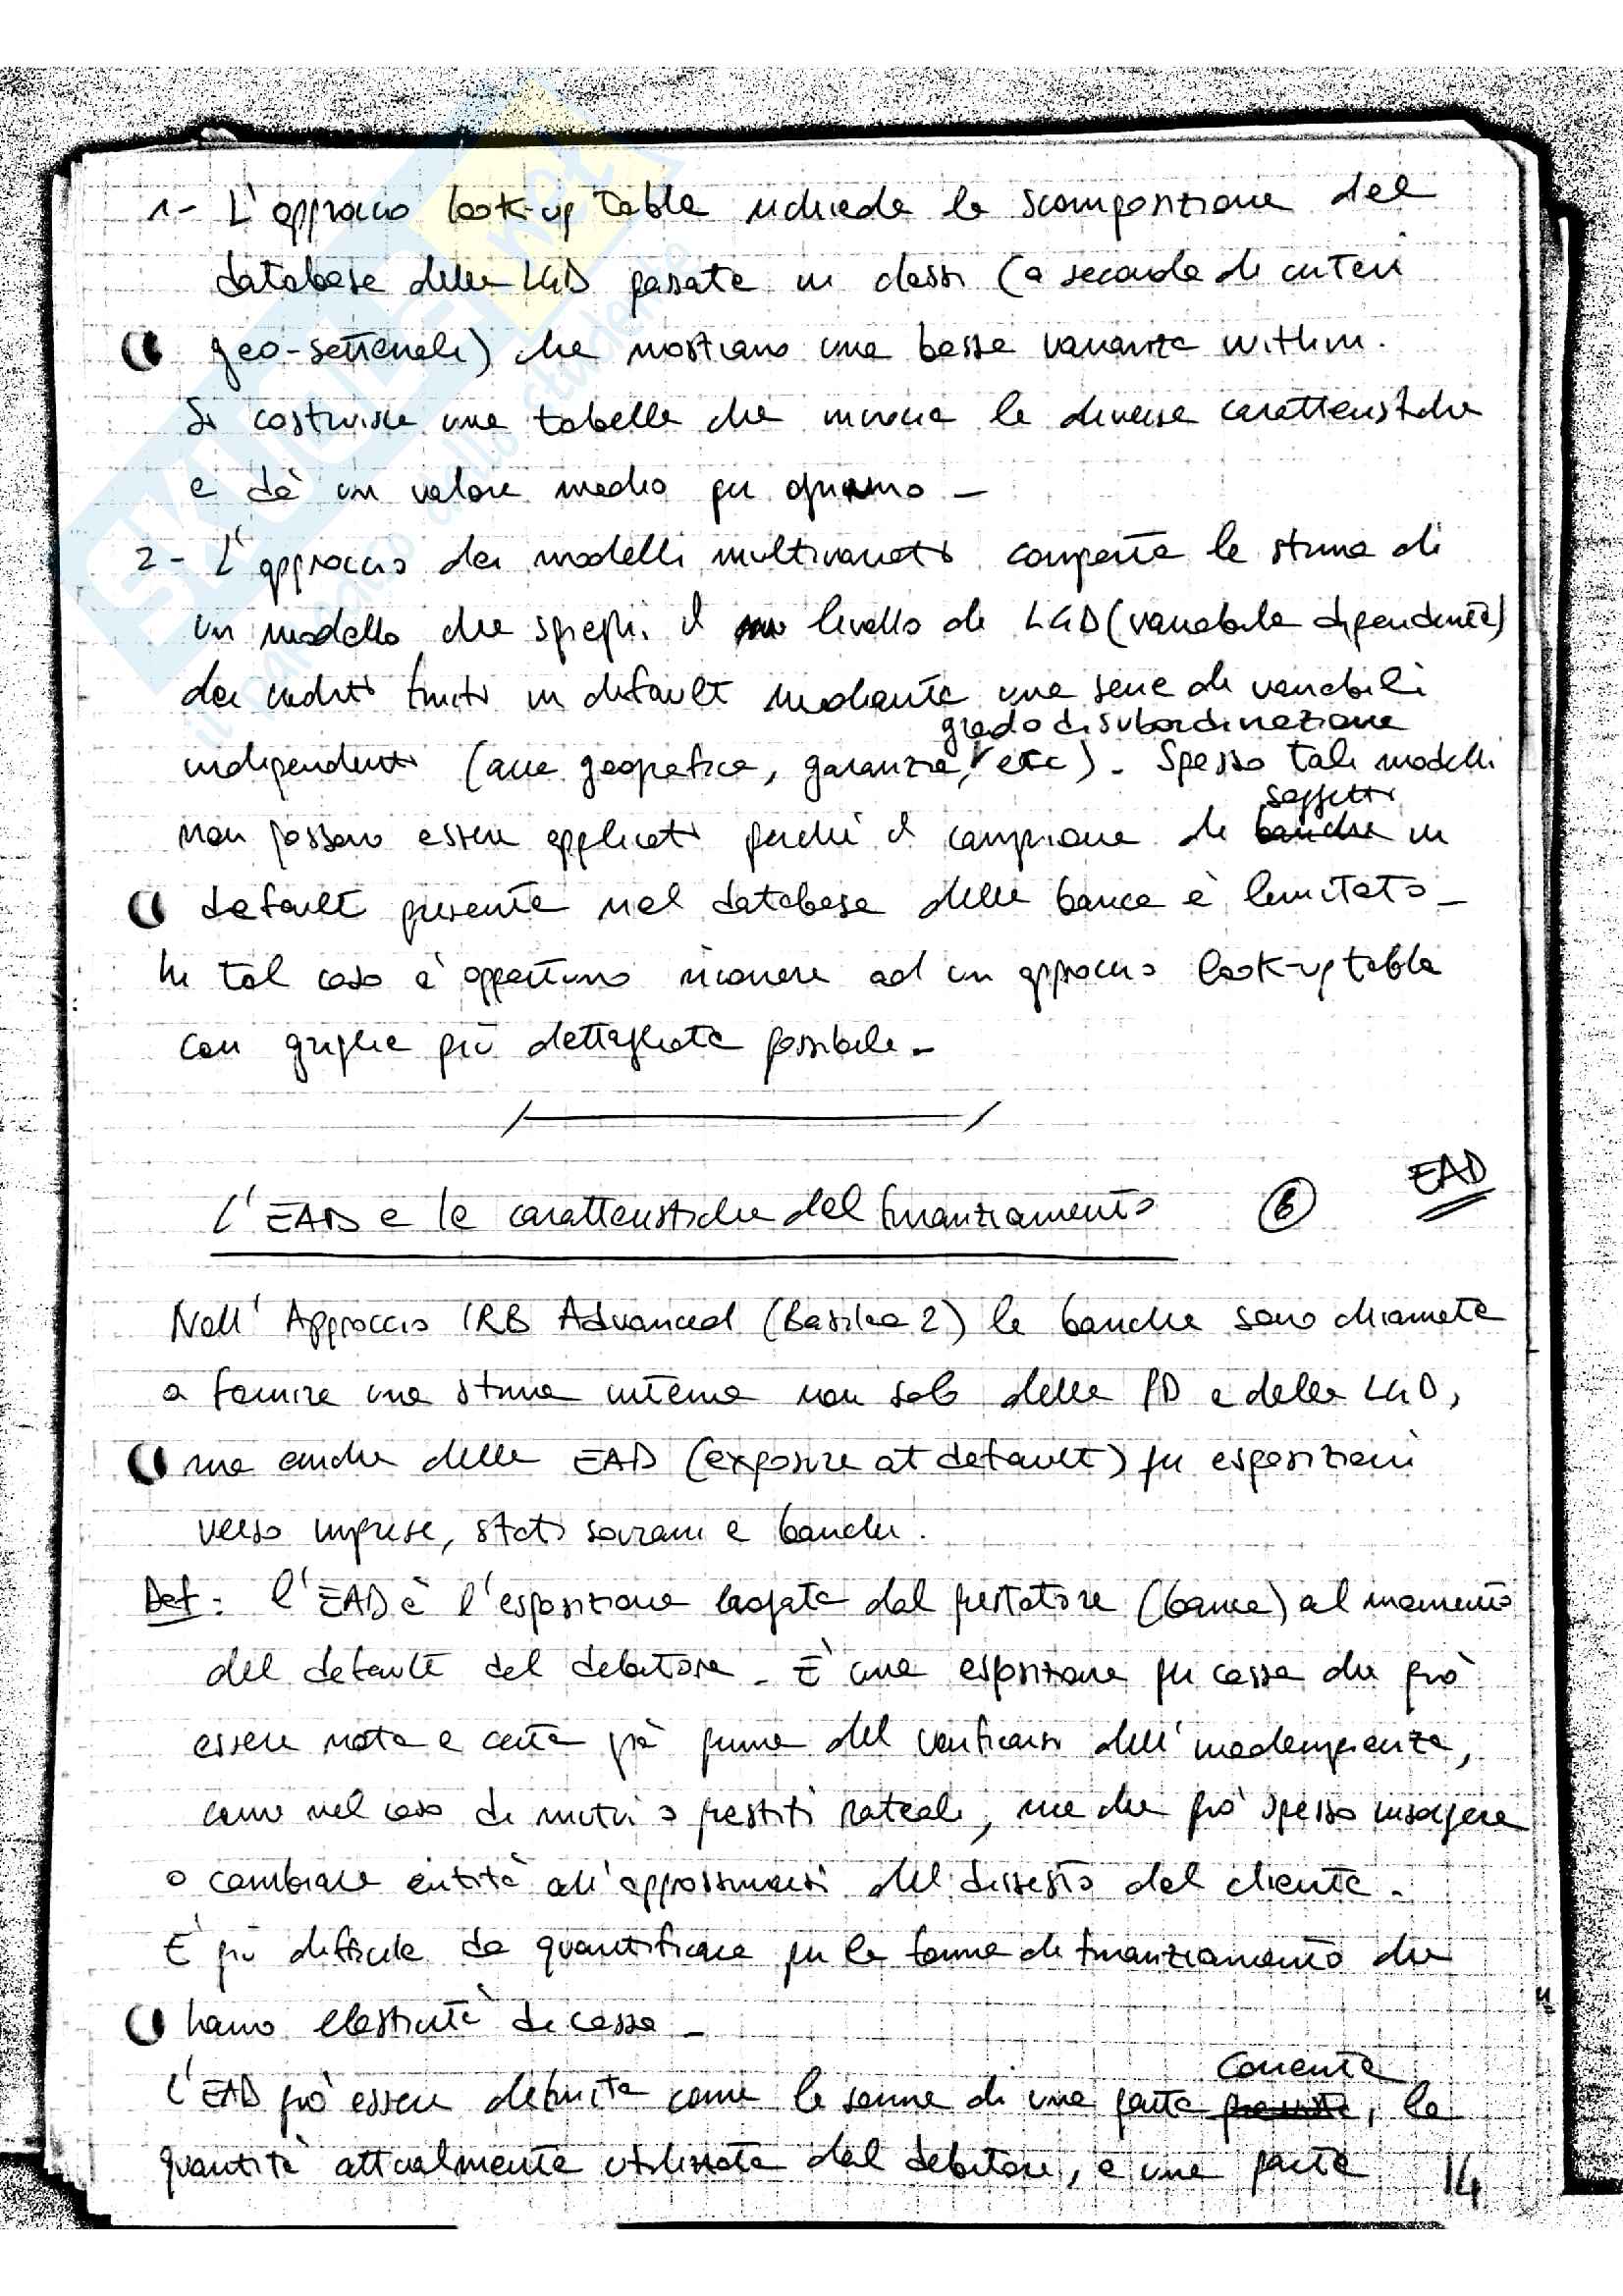 1- L'approccio look-up table richiede la scomposizione del
database delle LGD passate in classi (a seconda di criteri
geo-settoriali) che mostrano una bassa varianza within.
Si costruisce una tabella che incrocia le diverse caratteristiche
e dà un valore medio per ognuno -
2- L'approccio dei modelli multivariati comporta la stima di
un modello che spieghi il livello di LGD (variabile dipendente)
dei crediti finiti in default mediante una serie di variabili
grado di subordinazione
indipendenti (area geografica, garanzie, etc). Spesso tali modelli
soggetti
non possono essere applicati perché il campione di banche in
default presente nel database della banca è limitato -
In tal caso è opportuno ricorrere ad un approccio look-up table
con griglie più dettagliate possibile -
L'EAD e le caratteristiche del finanziamento 6 EAD
Nell'Approccio IRB Advanced (Basilea 2) le banche sono chiamate
a fornire una stima interna non solo della PD e della LGD,
ma anche della EAD (exposure at default) per esposizioni
verso imprese, stati sovrani e banche.
Def: l'EAD è l'esposizione vantata dal prestatore (banca) al momento
del default del debitore - È una esposizione per cassa che può
essere nota e certa già prima del verificarsi dell'inadempienza,
come nel caso di mutui o prestiti rateali, ma che può spesso insorgere
o cambiare entità all'approssimarsi del dissesto del cliente -
È più difficile da quantificare per le forme di finanziamento che
hanno elasticità di cassa -
corrente
L'EAD può essere definita come la somma di una parte, la
quantità attualmente utilizzata dal debitore, e una parte 14
SKUOLA.net